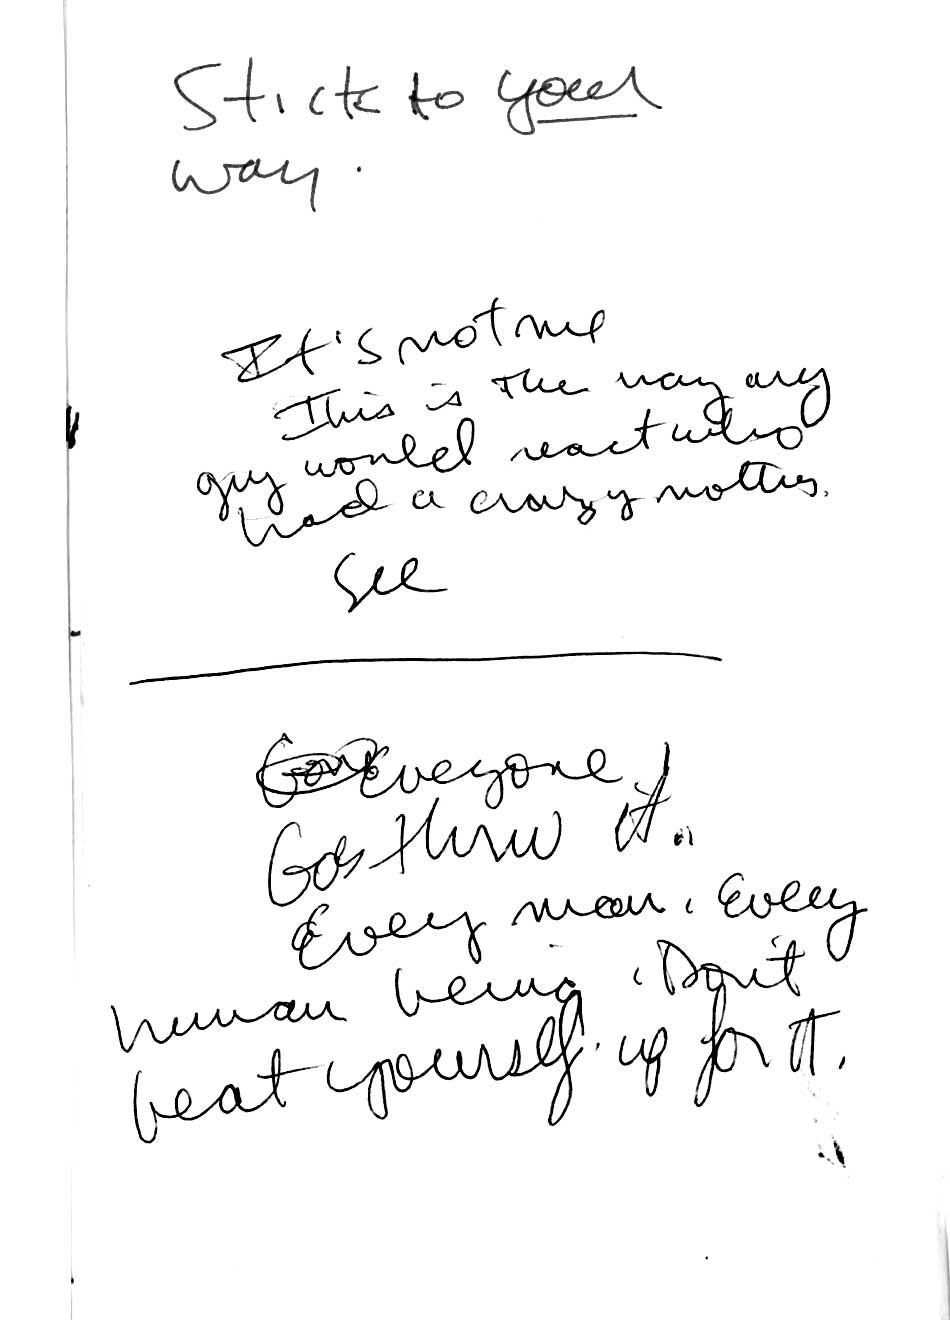 Stick to your
way.
It's not me
This is the way any
guy would react who
had a crazy mother.
See
Everyone
Goes thru it.
Every man. Every
human being. Don't
beat yourself up for it.